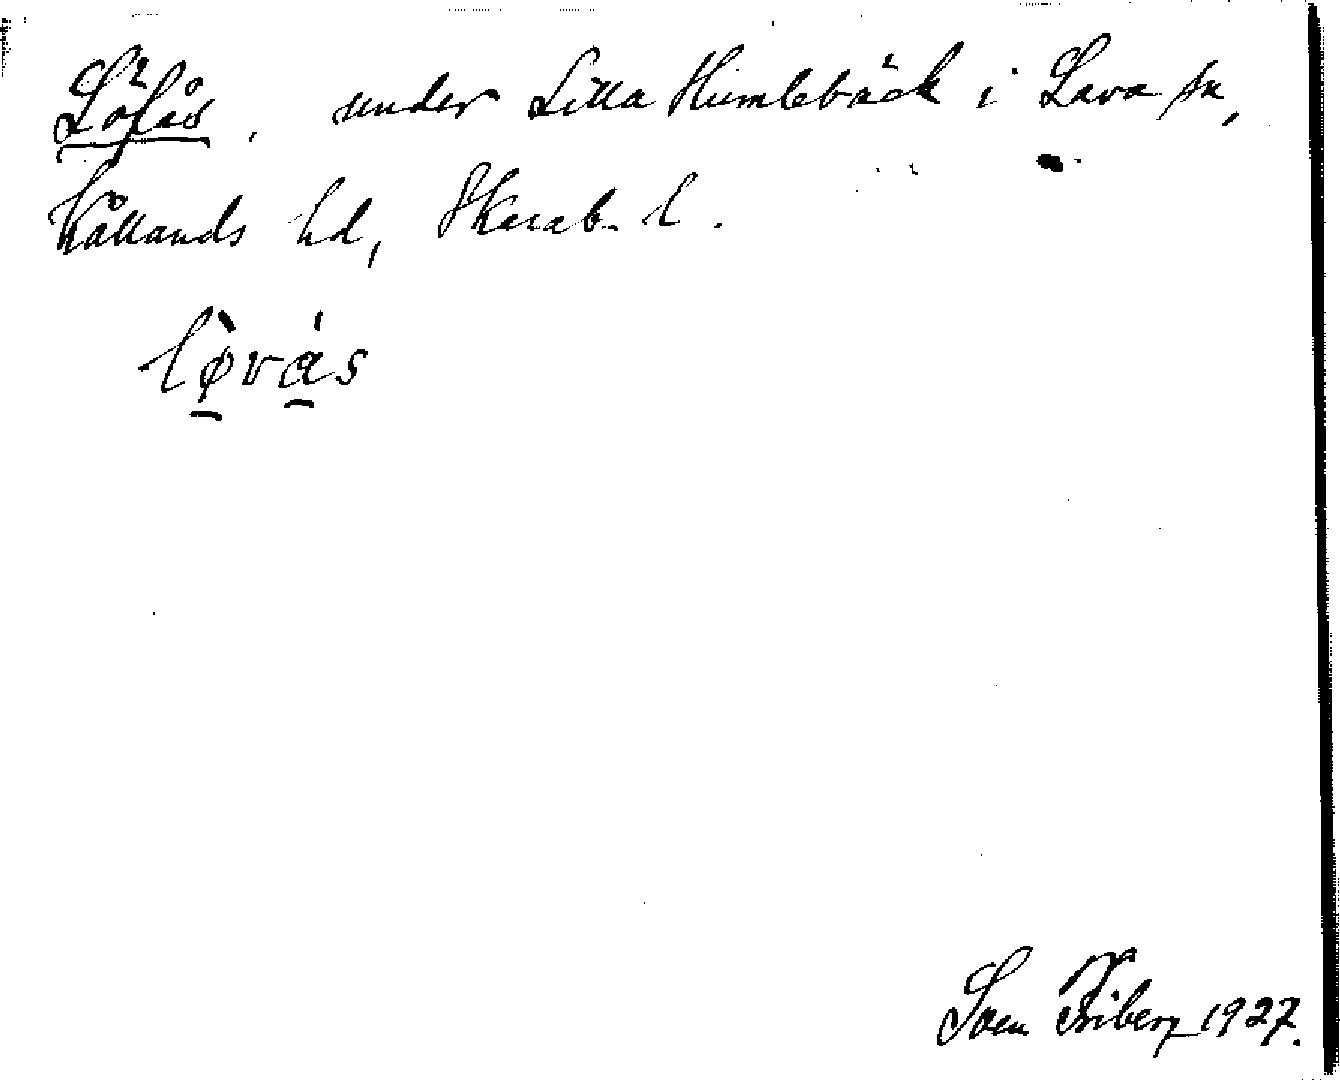 Löfås, under Lilla Humlebäck i Lava sn,
Kållands hd, Skarab. l.
lø̀vás
Sven Friberg 1927.